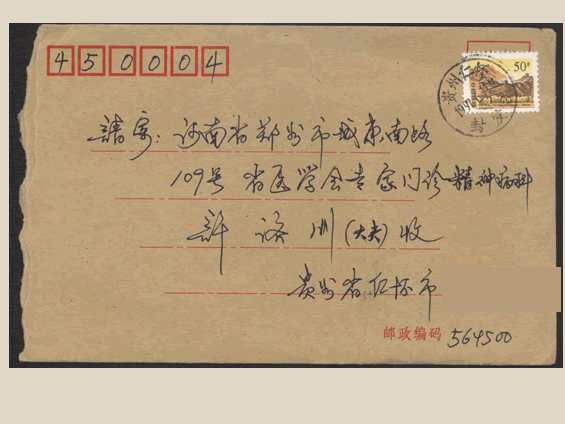 450004
50分
請寄:河南省郑州市城東南路
109号 省医学会专家门诊精神病科
許洛川(大夫)收
贵州省仁怀市
邮政编码 564500